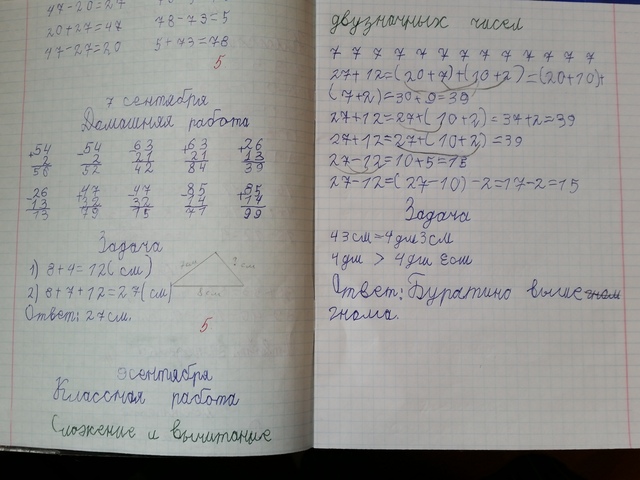 47-20=27
20+27=47 78-73=5
47-27=20 5+73=78
5
7 сентября
Домашняя работа
+54 -54 -63 +63 +26
2 2 21 21 13
56 52 42 84 39
-26 +47 -47 -85 +85
13 32 32 14 14
13 79 15 71 99
Задача
1) 8+4=12(см)
2) 8+7+12=27(см)
Ответ: 27см.
7см
8см
5
8сентября
Классная работа
Сложение и вычитание
двузначных чисел
7 7 7 7 7 7 7 7 7 7 7 7 7
27+12=(20+7)+(10+2)=(20+10)+
(7+2)=30+9=39
27+12=27+(10+2)=37+2=39
27+12=27+(10+2)=39
27-12=10+5=15
27-12=(27-10)-2=17-2=15
Задача
43см=4дм3см
4дм > 4дм
Ответ: Буратино выше гном
гнома.